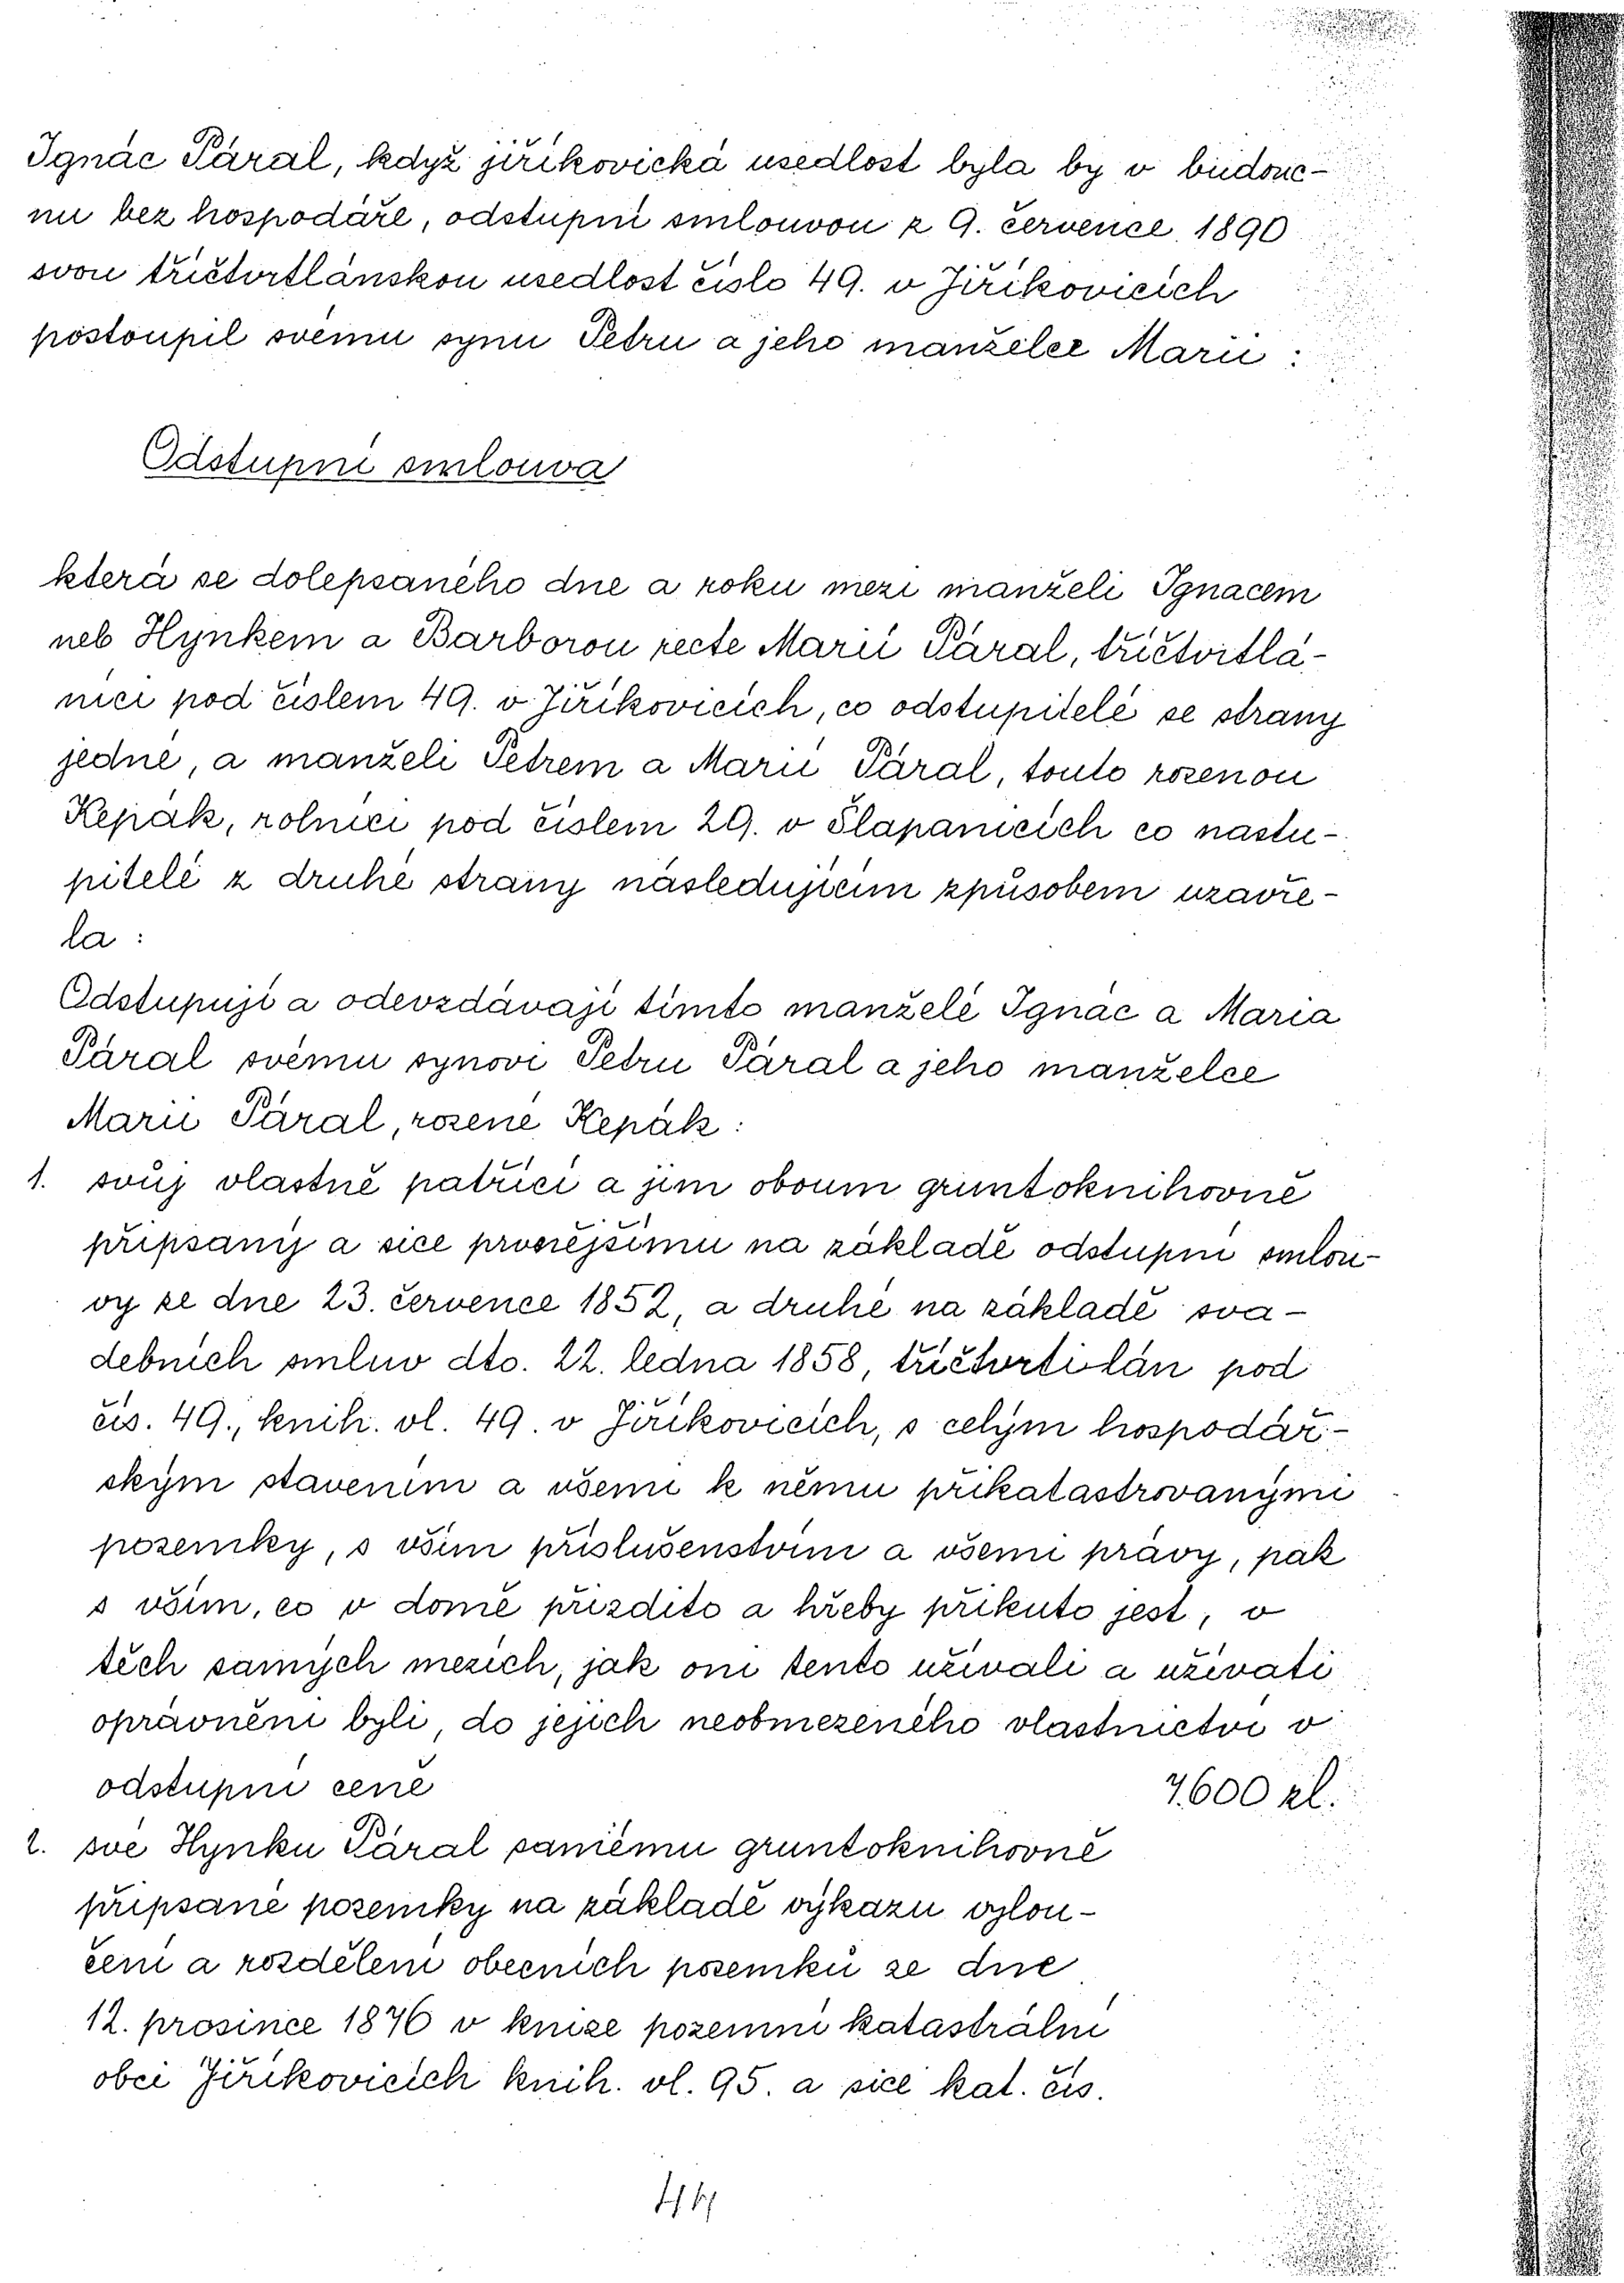 Ignác Páral, když jiříkovická usedlost byla by v budouc-
nu bez hospodáře, odstupní smlouvou z 9. července 1890
svou tříčtvrtlánskou usedlost číslo 49. v Jiříkovicích
postoupil svému synu Petru a jeho manželce Marii :
Odstupní smlouva
která se dolepsaného dne a roku mezi manželi Ignacem
neb Hynkem a Barborou recte Marií Páral, tříčtvrtlá-
níci pod číslem 49. v Jiříkovicích, co odstupitelé se strany
jedné, a manželi Petrem a Marií Páral, touto rozenou
Kepák, rolníci pod číslem 29. v Šlapanicích co nastu-
pitelé z druhé strany následujícím způsobem uzavře-
la :
Odstupují a odevzdávají tímto manželé Ignác a Maria
Páral svému synovi Petru Páral a jeho manželce
Marii Páral, rozené Kepák :
1. svůj vlastně patřící a jim oboum gruntoknihovně
připsaný a sice prvnějšímu na základě odstupní smlou-
vy ze dne 23. července 1852, a druhé na základě sva-
debních smluv dto. 22. ledna 1858, tříčtvrtilán pod
čís. 49., knih. vl. 49. v Jiříkovicích, s celým hospodář-
ským stavením a všemi k němu přikatastrovanými
pozemky, s vším příslušenstvím a všemi právy, pak
s vším, co v domě přizdíto a hřeby přikuto jest, v
těch samých mezích, jak oni tento užívali a užívati
oprávněni byli, do jejich neobmezeného vlastnictví v
odstupní ceně 7.600 zl.
2. své Hynku Páral samému gruntoknihovně
připsané pozemky na základě výkazu vylou-
čení a rozdělení obecních pozemků ze dne
12. prosince 1876 v knize pozemní katastrální
obci Jiříkovicích knih. vl. 95. a sice kat. čís.
44